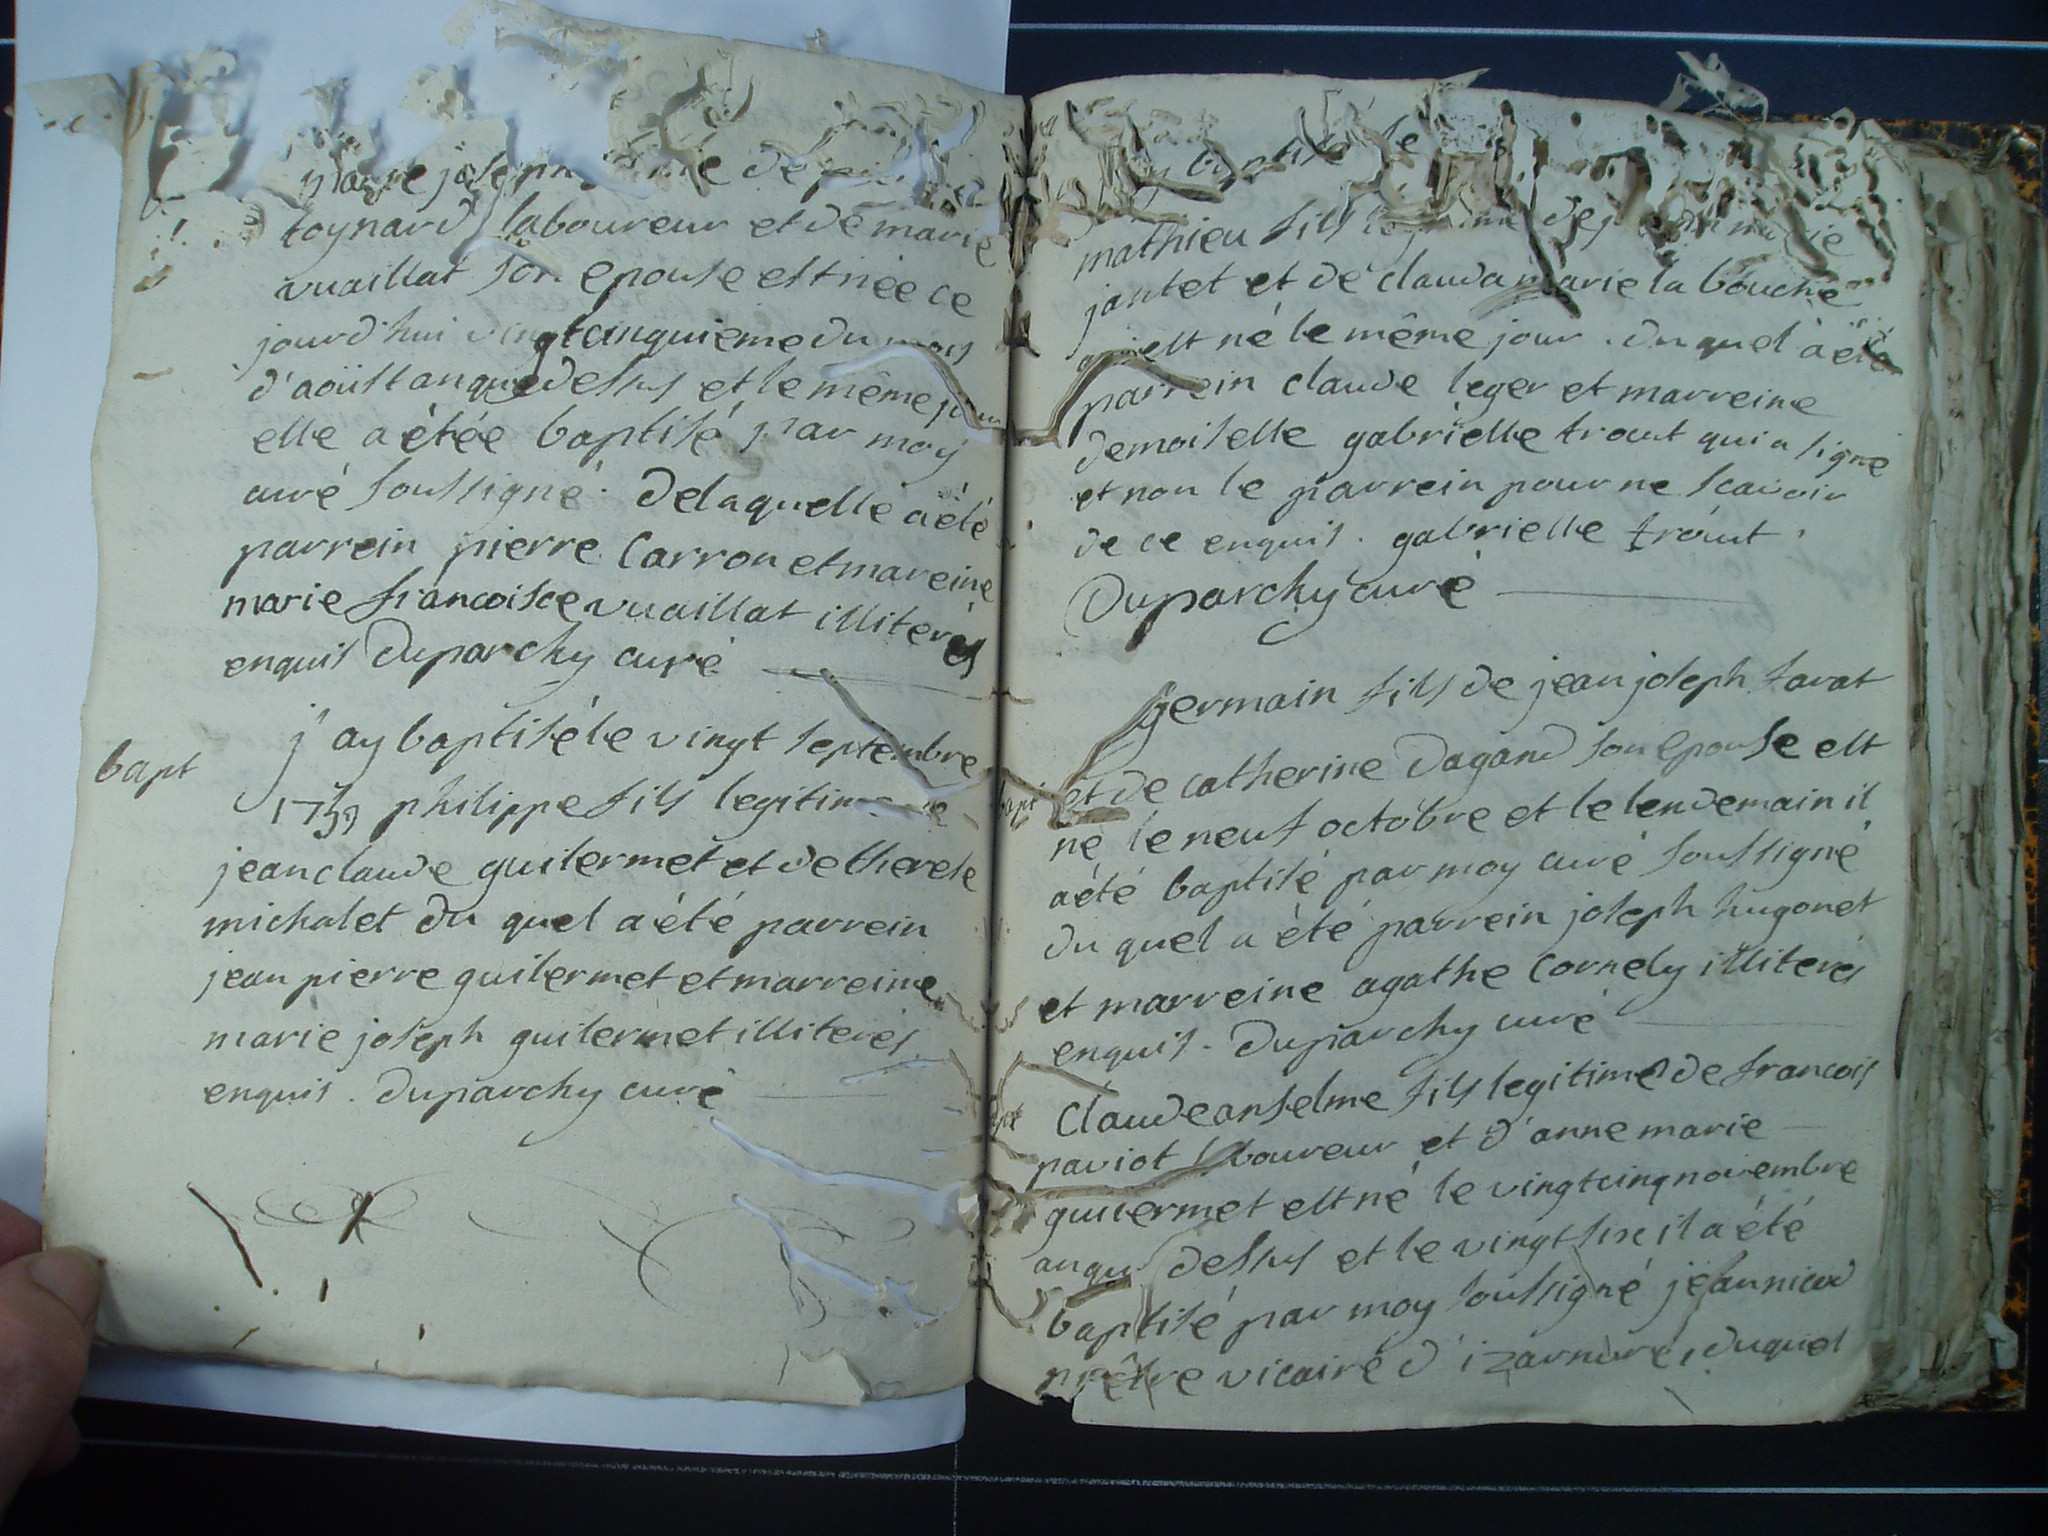 marie joseph
toynard laboureur et de marie
vuaillat son epouse est née ce
jourd'hui vingtcinquieme du mois
d'aoüst an que dessus et le même jour
elle a étée baptisé par moy
curé soussigné. de laquelle a été
parrein pierre Carron et mareine
marie francoise vuaillat illiterés
enquis Duparchy curé
bapt
j'ay baptisé le vingt septembre
1739 philippe fils legitime de
jean claude guilermet et de therese
michalet du quel a été parrein
jean pierre guilermet et marreine
marie joseph guilermet illiterés
enquis. Duparchy curé
baptisé le
mathieu fils de marie
jantet et de claudamarie la bouche
qui est né le même jour. du quel à été
parrein claude leger et marreine
demoiselle gabrielle trout qui a signe
et non le parrein pour ne scavoir
de ce enquis. gabrielle trout.
Duparchy curé
germain fils de jean joseph tavat
bapt
et de catherine dagand son epouse est
né le neuf octobre et le lendemain il
a été baptisé par moy curé soussigné
du quel a été parrein joseph hugonet
et marreine agathe Cornely illiterés
enquis. Duparchy curé
Claude anselme fils legitime de francois
paviot laboureur et d'anne marie
guilermet est né le vingtcinq novembre
an que dessus et le vingt six il a été
baptisé par moy soussigné jean nicod
prêtre vicaire d'izarnore, duquel